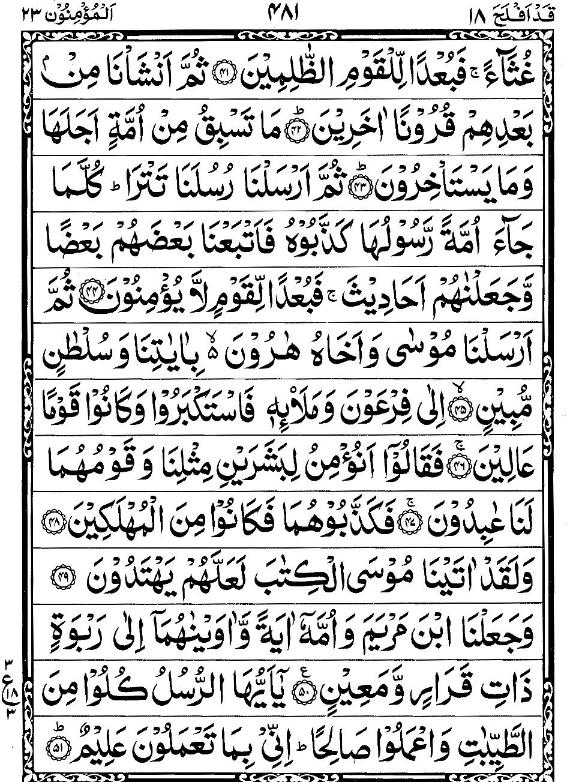 قَدْ اَفْلَحَ ١٨ ٤٨١ اَلْمُؤْمِنُوْن ٢٣
غُثَآءً ۚ فَبُعْدًا لِّلْقَوْمِ الظّٰلِمِيْنَ ۝٤١ ثُمَّ اَنْشَاْنَا مِنْۢ
بَعْدِهِمْ قُرُوْنًا اٰخَرِيْنَ ۝ؕ٤٢ مَا تَسْبِقُ مِنْ اُمَّةٍ اَجَلَهَا
وَمَا يَسْتَاْخِرُوْنَ ۝ؕ٤٣ ثُمَّ اَرْسَلْنَا رُسُلَنَا تَتْرَا ؕ كُلَّمَا
جَآءَ اُمَّةً رَّسُوْلُهَا كَذَّبُوْهُ فَاَتْبَعْنَا بَعْضَهُمْ بَعْضًا
وَّجَعَلْنٰهُمْ اَحَادِيْثَ ۚ فَبُعْدًا لِّقَوْمٍ لَّا يُؤْمِنُوْنَ ۝٤٤ ثُمَّ
اَرْسَلْنَا مُوْسٰى وَاَخَاهُ هٰرُوْنَ ۙ۬ بِاٰيٰتِنَا وَسُلْطٰنٍ
مُّبِيْنٍ ۝ۙ٤٥ اِلٰى فِرْعَوْنَ وَمَلَا۟ئِهٖ فَاسْتَكْبَرُوْا وَكَانُوْا قَوْمًا
عَالِيْنَ ۝ۚ٤٦ فَقَالُوْۤا اَنُؤْمِنُ لِبَشَرَيْنِ مِثْلِنَا وَقَوْمُهُمَا
لَنَا عٰبِدُوْنَ ۝ۚ٤٧ فَكَذَّبُوْهُمَا فَكَانُوْا مِنَ الْمُهْلَكِيْنَ ۝٤٨
وَلَقَدْ اٰتَيْنَا مُوْسَى الْكِتٰبَ لَعَلَّهُمْ يَهْتَدُوْنَ ۝٤٩
وَجَعَلْنَا ابْنَ مَرْيَمَ وَاُمَّهٗۤ اٰيَةً وَّاٰوَيْنٰهُمَاۤ اِلٰى رَبْوَةٍ
ذَاتِ قَرَارٍ وَّمَعِيْنٍ ۝ع٥٠ يٰۤاَيُّهَا الرُّسُلُ كُلُوْا مِنَ
٣ ع ١٨ ٣
الطَّيِّبٰتِ وَاعْمَلُوْا صَالِحًا ؕ اِنِّىْ بِمَا تَعْمَلُوْنَ عَلِيْمٌ ۝ؕ٥١